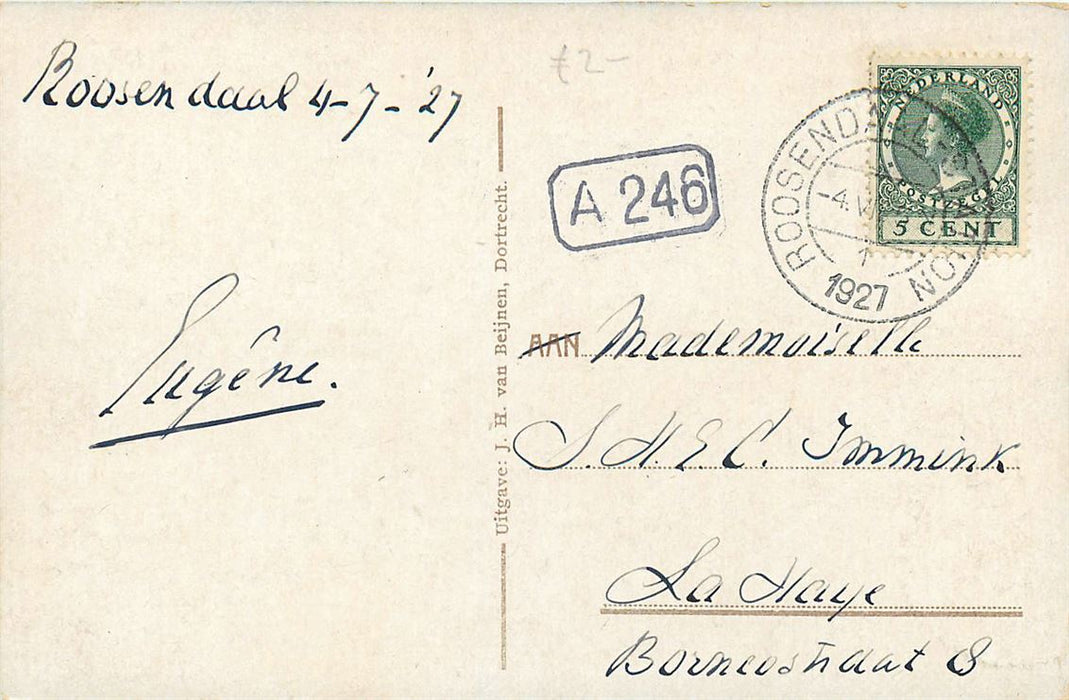 Roosendaal 4-7-'27
£2-
A 246
NEDERLAND
POSTZEGEL
5 CENT
ROOSENDAAL STATION
-4.VII
1
1927
Eugêne.
Uitgave: J. H. van Beijnen, Dortrecht.
AAN Mademoiselle
S. H. E. C. Immink
La Haye
Borneostraat 8